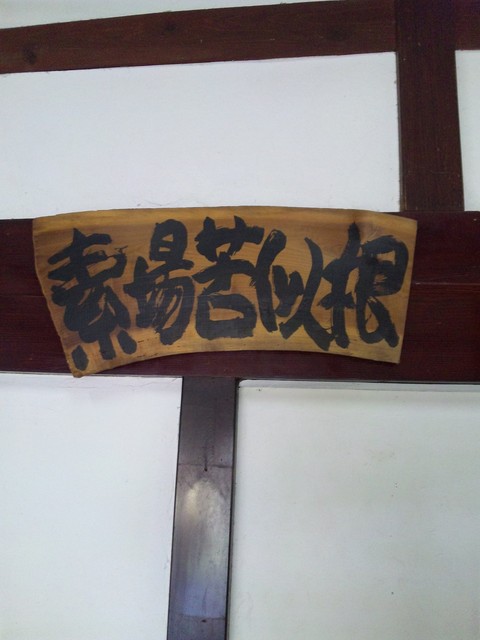 素場苦似根